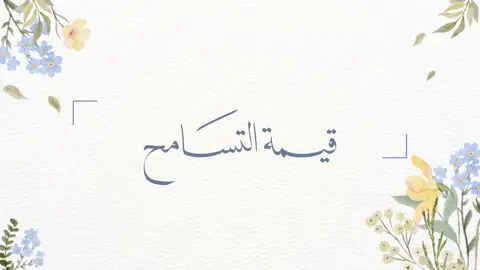 قيمة التسامح